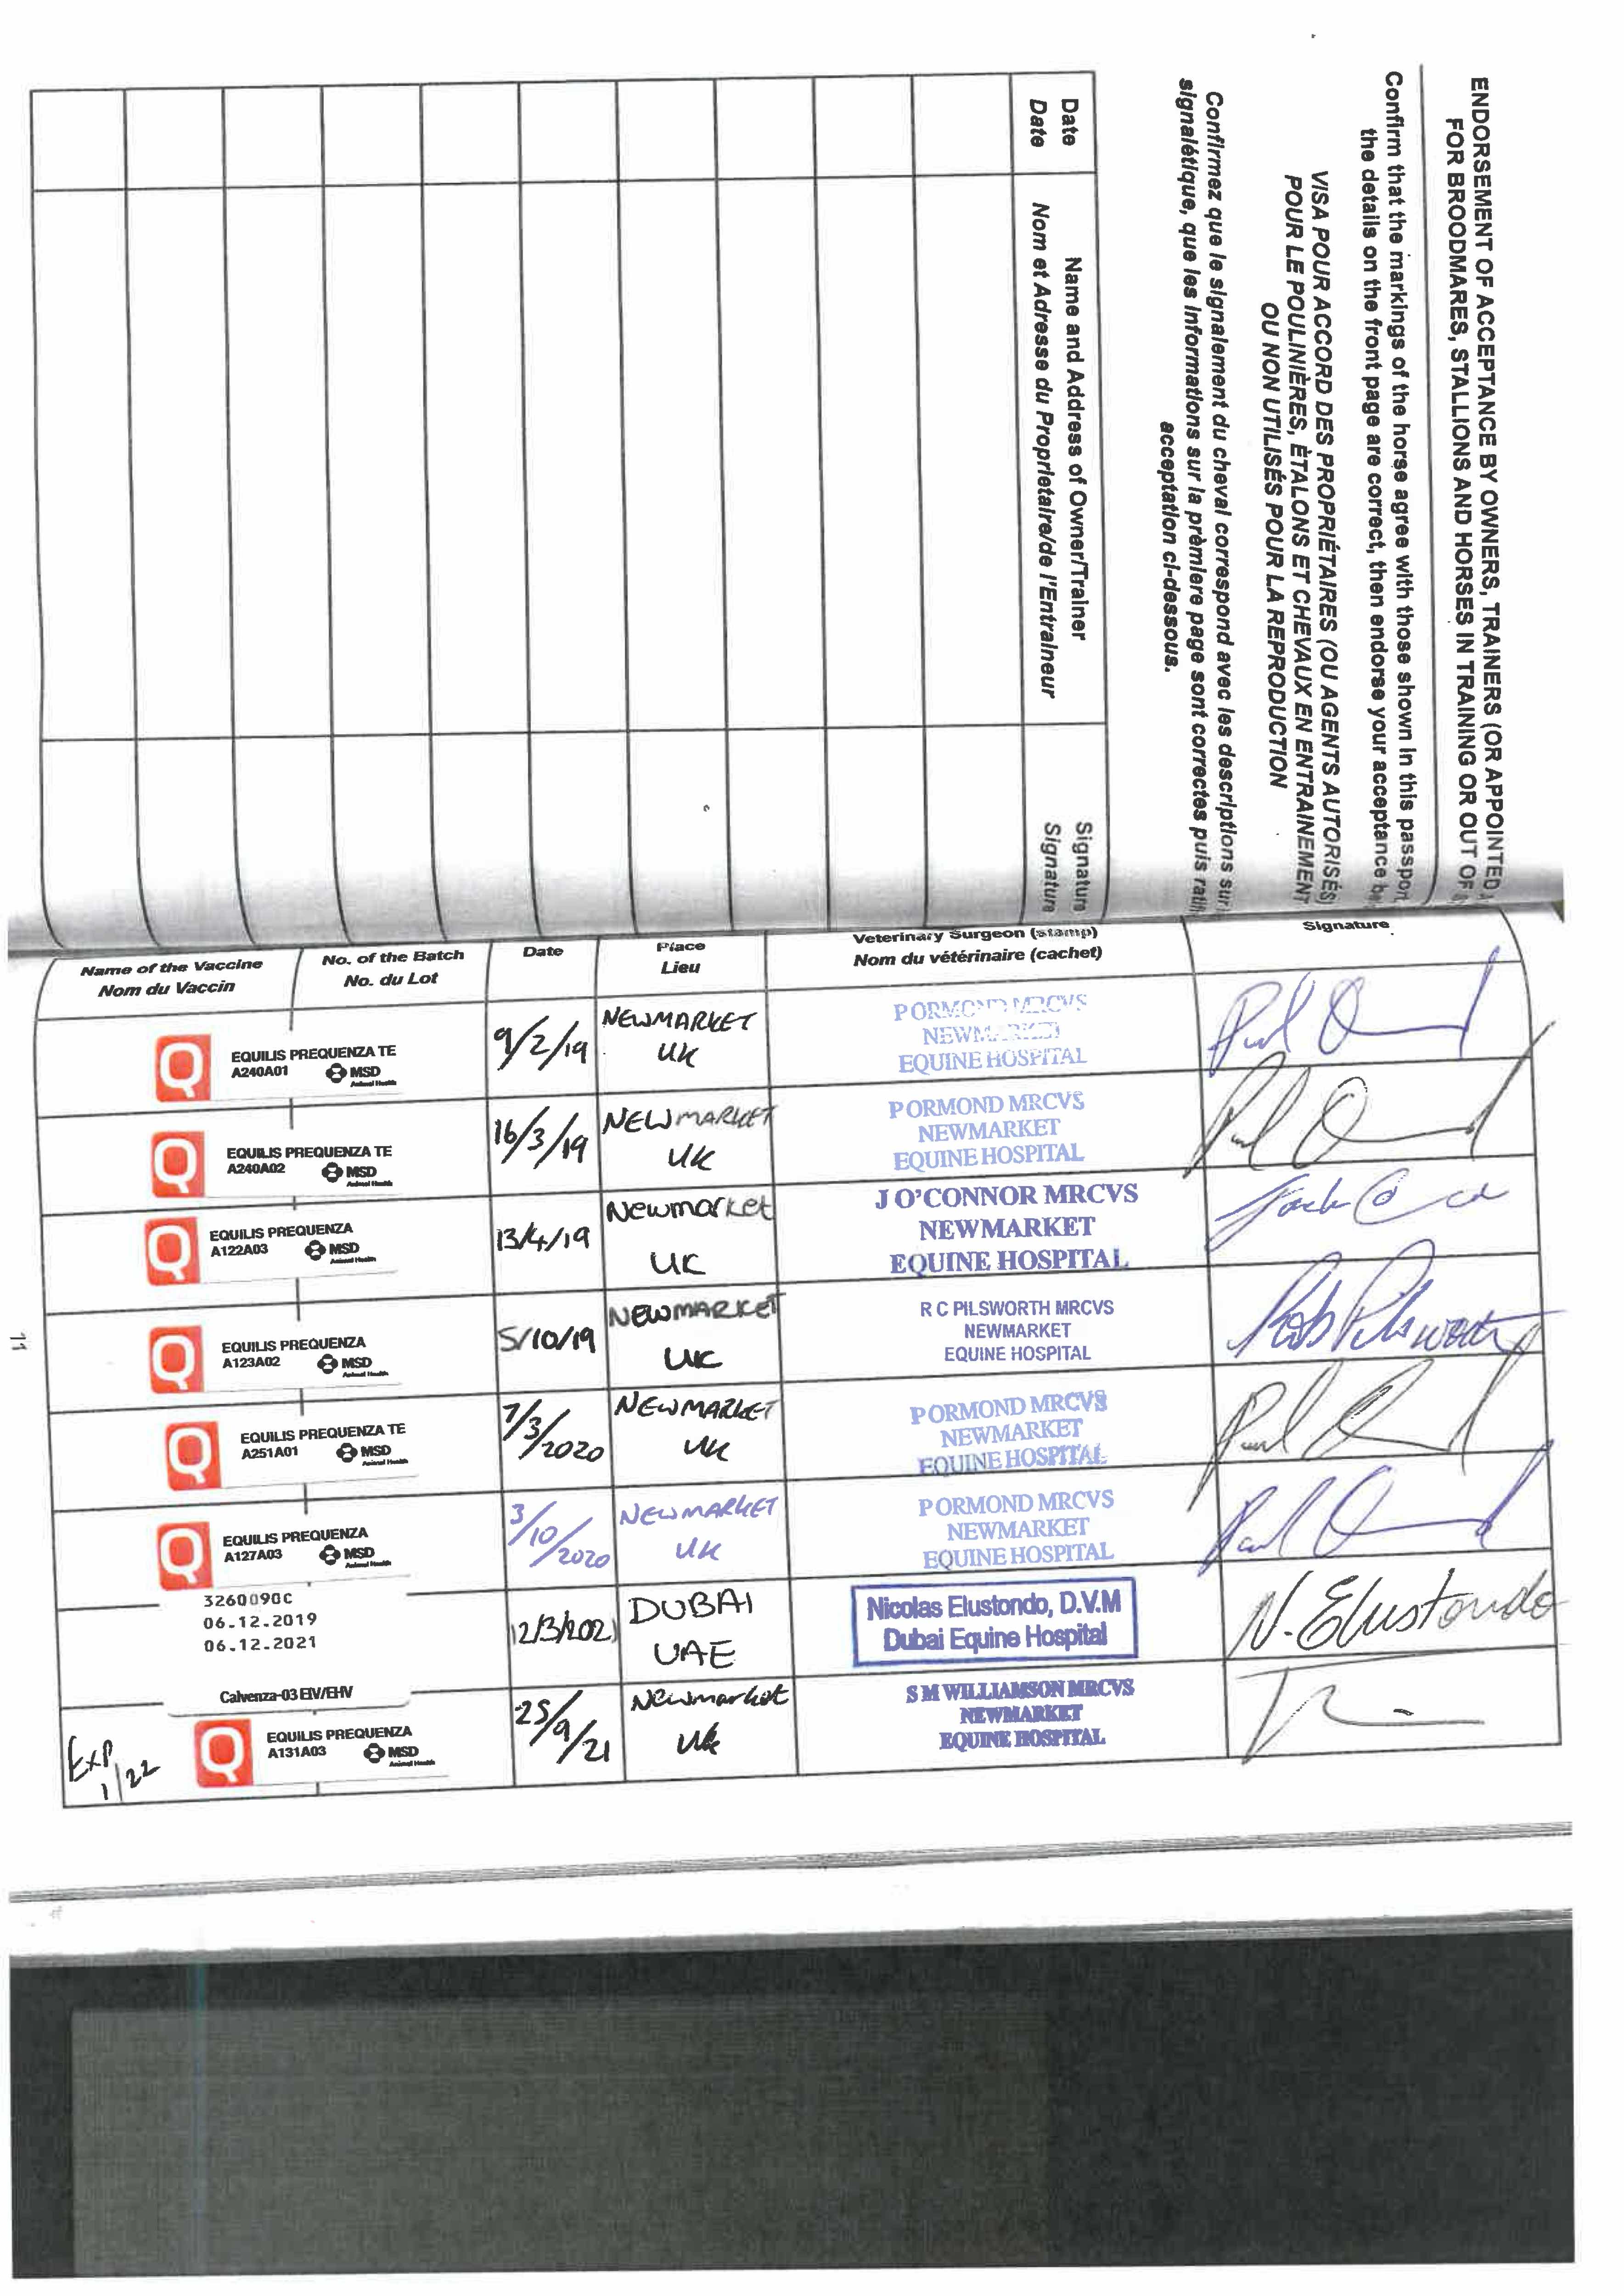 ENDORSEMENT OF ACCEPTANCE BY OWNERS, TRAINERS (OR APPOINTED
FOR BROODMARES, STALLIONS AND HORSES IN TRAINING OR OUT OF
Confirm that the markings of the horse agree with those shown in this passport,
the details on the front page are correct, then endorse your acceptance
VISA POUR ACCORD DES PROPRIÉTAIRES (OU AGENTS AUTORISÉS)
POUR LE POULINIÈRES, ÈTALONS ET CHEVAUX EN ENTRAINEMENT
OU NON UTILISÉS POUR LA REPRODUCTION
Confirmez que le signalement du cheval correspond avec les descriptions sur
signalétique, que les informations sur la prèmiere page sont correctes puis
acceptation ci-dessous.
Date
Date
Name and Address of Owner/Trainer
Nom et Adresse du Proprietaire/de l'Entraîneur
Signature
Signature
Name of the Vaccine
Nom du Vaccin
No. of the Batch
No. du Lot
Date
Place
Lieu
Veterinary Surgeon (stamp)
Nom du vétérinaire (cachet)
Signature
Q
EQUILIS PREQUENZA TE
A240A01 MSD
Animal Health
9/2/19
NEWMARKET
UK
P ORMOND MRCVS
NEWMARKET
EQUINE HOSPITAL
Q
EQUILIS PREQUENZA TE
A240A02 MSD
Animal Health
16/3/19
NEWMARKET
UK
P ORMOND MRCVS
NEWMARKET
EQUINE HOSPITAL
Q
EQUILIS PREQUENZA
A122A03 MSD
Animal Health
13/4/19
Newmarket
UK
J O'CONNOR MRCVS
NEWMARKET
EQUINE HOSPITAL
Q
EQUILIS PREQUENZA
A123A02 MSD
Animal Health
5/10/19
NEWMARKET
UK
R C PILSWORTH MRCVS
NEWMARKET
EQUINE HOSPITAL
Rob Pilsworth
Q
EQUILIS PREQUENZA TE
A251A01 MSD
Animal Health
7/3/2020
NEWMARKET
UK
P ORMOND MRCVS
NEWMARKET
EQUINE HOSPITAL
Q
EQUILIS PREQUENZA
A127A03 MSD
Animal Health
3/10/2020
NEWMARKET
UK
P ORMOND MRCVS
NEWMARKET
EQUINE HOSPITAL
3260090C
06.12.2019
06.12.2021
Calvenza-03 EIV/EHV
12/3/2021
DUBAI
UAE
Nicolas Elustondo, D.V.M
Dubai Equine Hospital
N. Elustondo
Exp
1/22
Q
EQUILIS PREQUENZA
A131A03 MSD
Animal Health
25/9/21
Newmarket
UK
S M WILLIAMSON MRCVS
NEWMARKET
EQUINE HOSPITAL
11